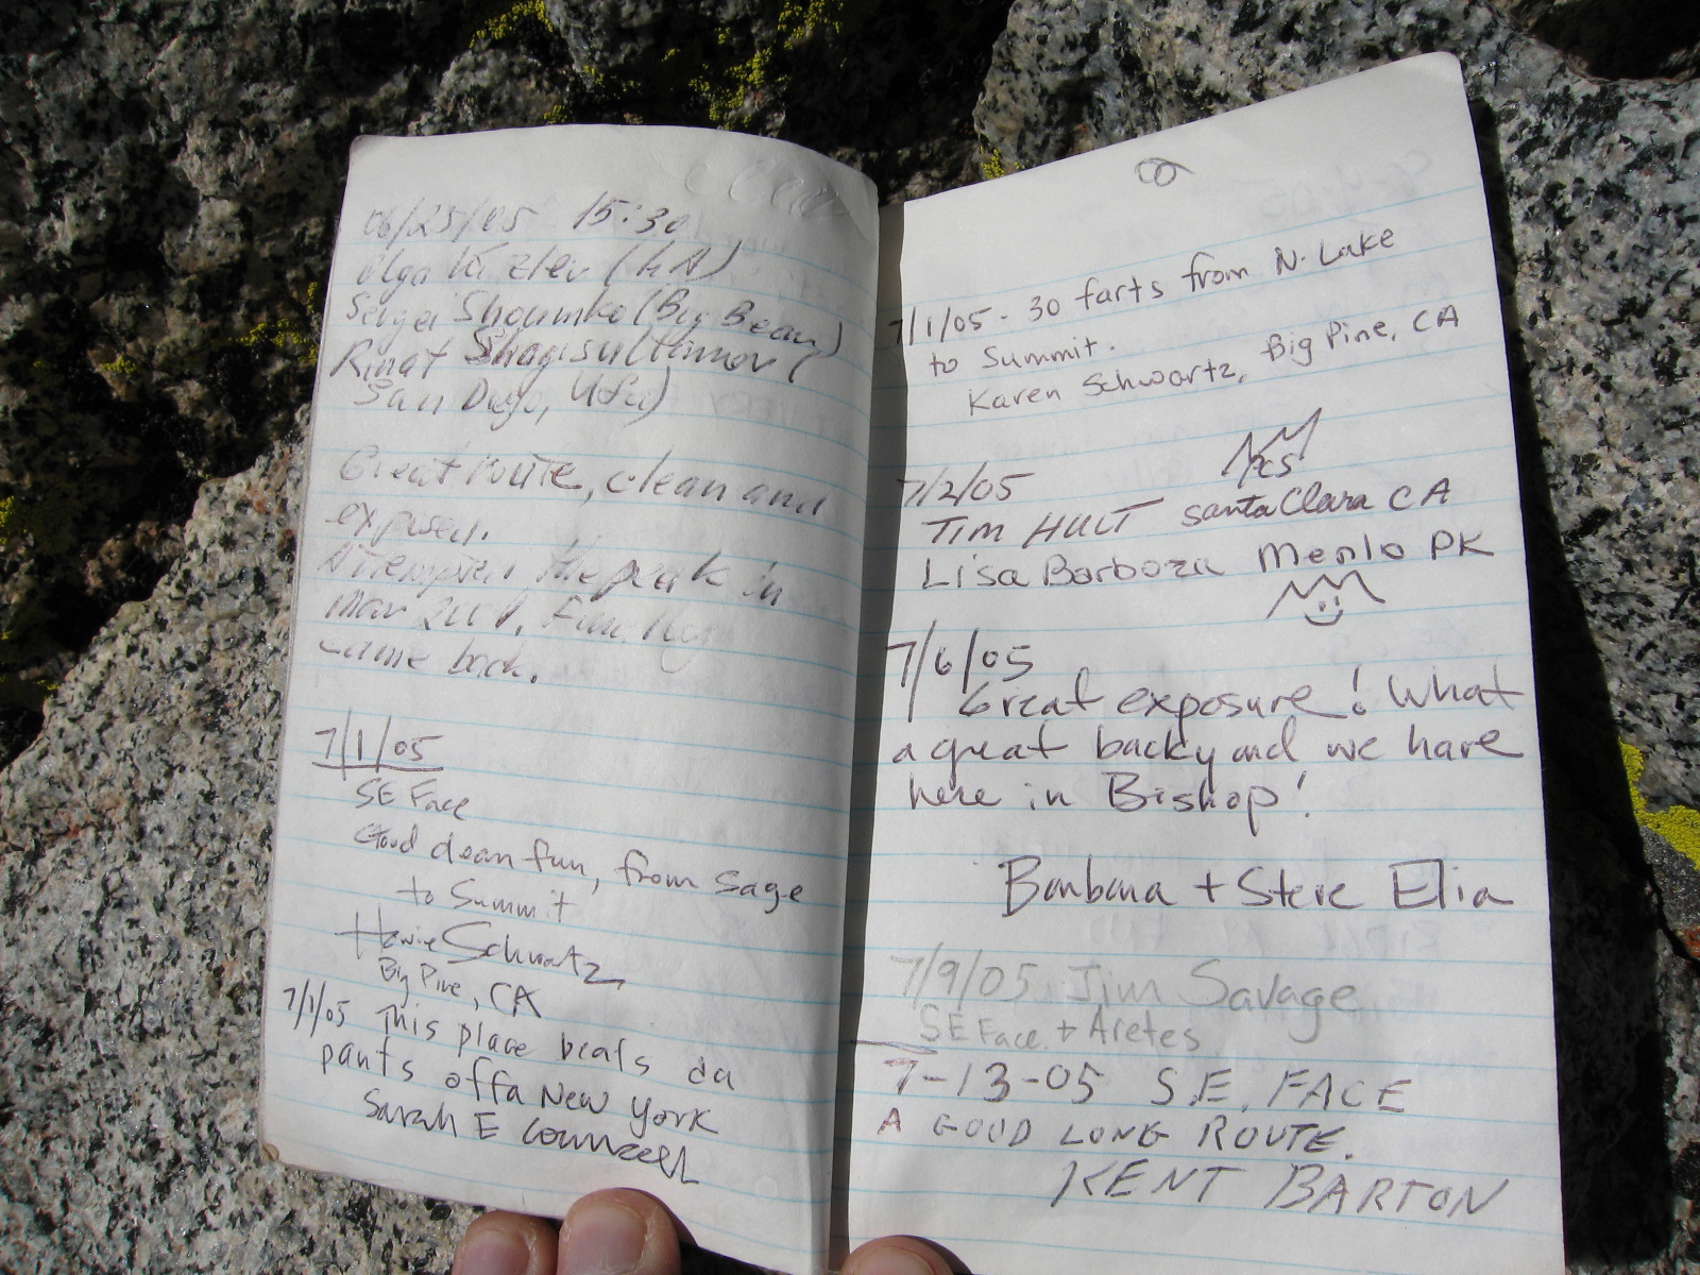 06/25/05 15:30
Olga (LA)
Sergei Shoumko (Big Bear)
Rinat (
San Diego, Ufa)
Great route, clean and
exposed.
Attempted the peak in
mar Finally
came back.
7/1/05
SE Face
Good clean fun, from Sage
to Summit
Howie Schwartz
Big Pine, CA
7/1/05 This place beats da
pants offa New York
Sarah E
7/1/05 - 30 farts from N. Lake
to Summit.
Karen Schwartz, Big Pine, CA
PCS
7/2/05
TIM HULT Santa Clara CA
Lisa Barboza Menlo PK
7/6/05
Great exposure! What
a great backyard we have
here in Bishop!
Barbara + Steve Elia
7/9/05 Jim Savage
SE Face + Aretes
7-13-05 S.E. FACE
A GOOD LONG ROUTE.
KENT BARTON